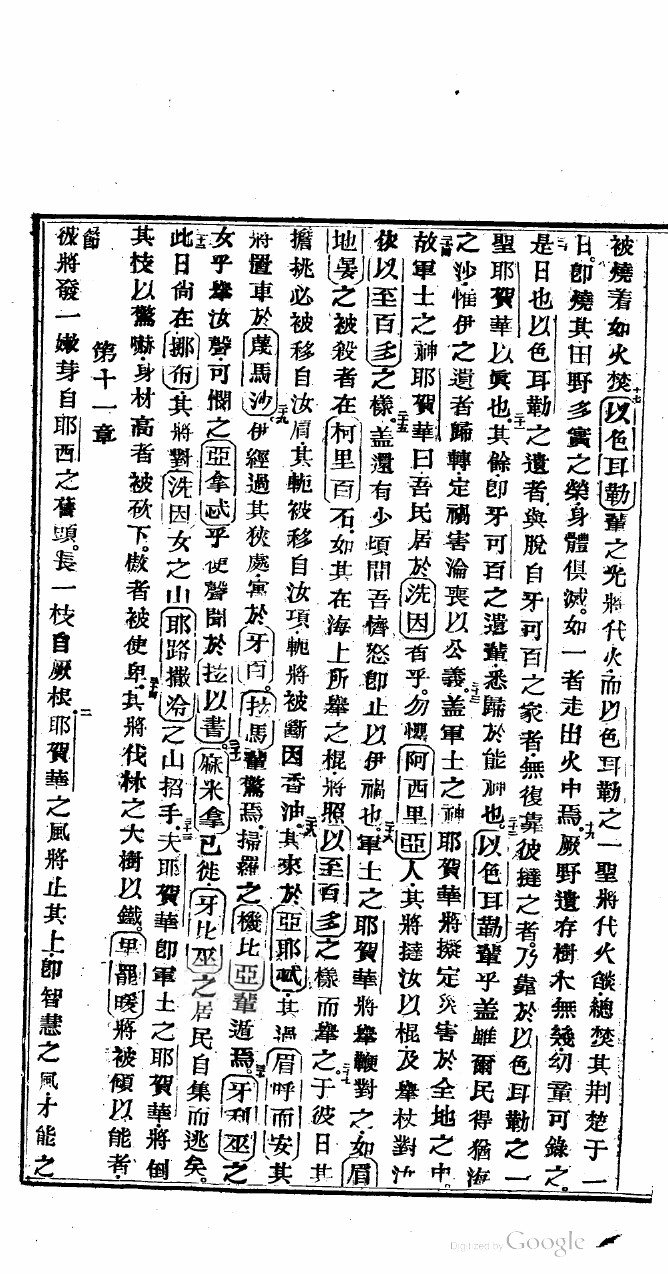 被燒着如火焚十七以色耳勒輩之光將代火而以色耳勒之一聖將代火燄總焚其荆楚于一
日十八卽燒其田野多實之榮身體俱滅如一者走出火中焉十九厥野遺存樹木無幾幼童可錄之
二十是日也以色耳勒之遺者與脫自牙可百之家者無復靠彼撻之者乃靠於以色耳勒之一
聖耶賀華以眞也二十一其餘卽牙可百之遺輩悉歸於能神也二十二以色耳勒輩乎盖雖爾民得猶海
之沙惟伊之遺者歸轉定禍害淪喪以公義二十三盖軍士之神耶賀華將擬定災害於全地之中
二十四故軍士之神耶賀華曰吾民居於洗因者乎勿懼阿西里亞人其將撻汝以棍及舉杖對汝
依以至百多之樣二十五盖還有少頃間吾儕怒卽止以伊禍也二十六軍士之耶賀華將舉鞭對之如眉
地晏之被殺者在柯里百石如其在海上所舉之棍將照以至百多之樣而舉之二十七于彼日其
擔挑必被移自汝肩其軛被移自汝項軛將被斷因香油二十八其來於亞耶忒其過眉呼而安其
將置車於蔑馬沙二十九伊經過其狹處寓於牙百拉馬輩驚焉掃羅之機比亞輩遁焉三十牙利巫之
女乎舉汝聲可憫之亞拿忒乎使聲聞於拉以書三十一麻米拿已徙牙比巫之居民自集而逃矣
三十二此日尙在挪布其將對洗因女之山耶路撒冷之山招手三十三夫耶賀華卽軍士之耶賀華將倒
其枝以驚嚇身材高者被砍下傲者被使卑三十四其將伐林之大樹以鐵里罷暖將被傾以能者
第十一章
一節彼將發一嫩芽自耶西之舊頭長一枝自厥根二耶賀華之風將止其上卽智慧之風才能之
Digitized by Google